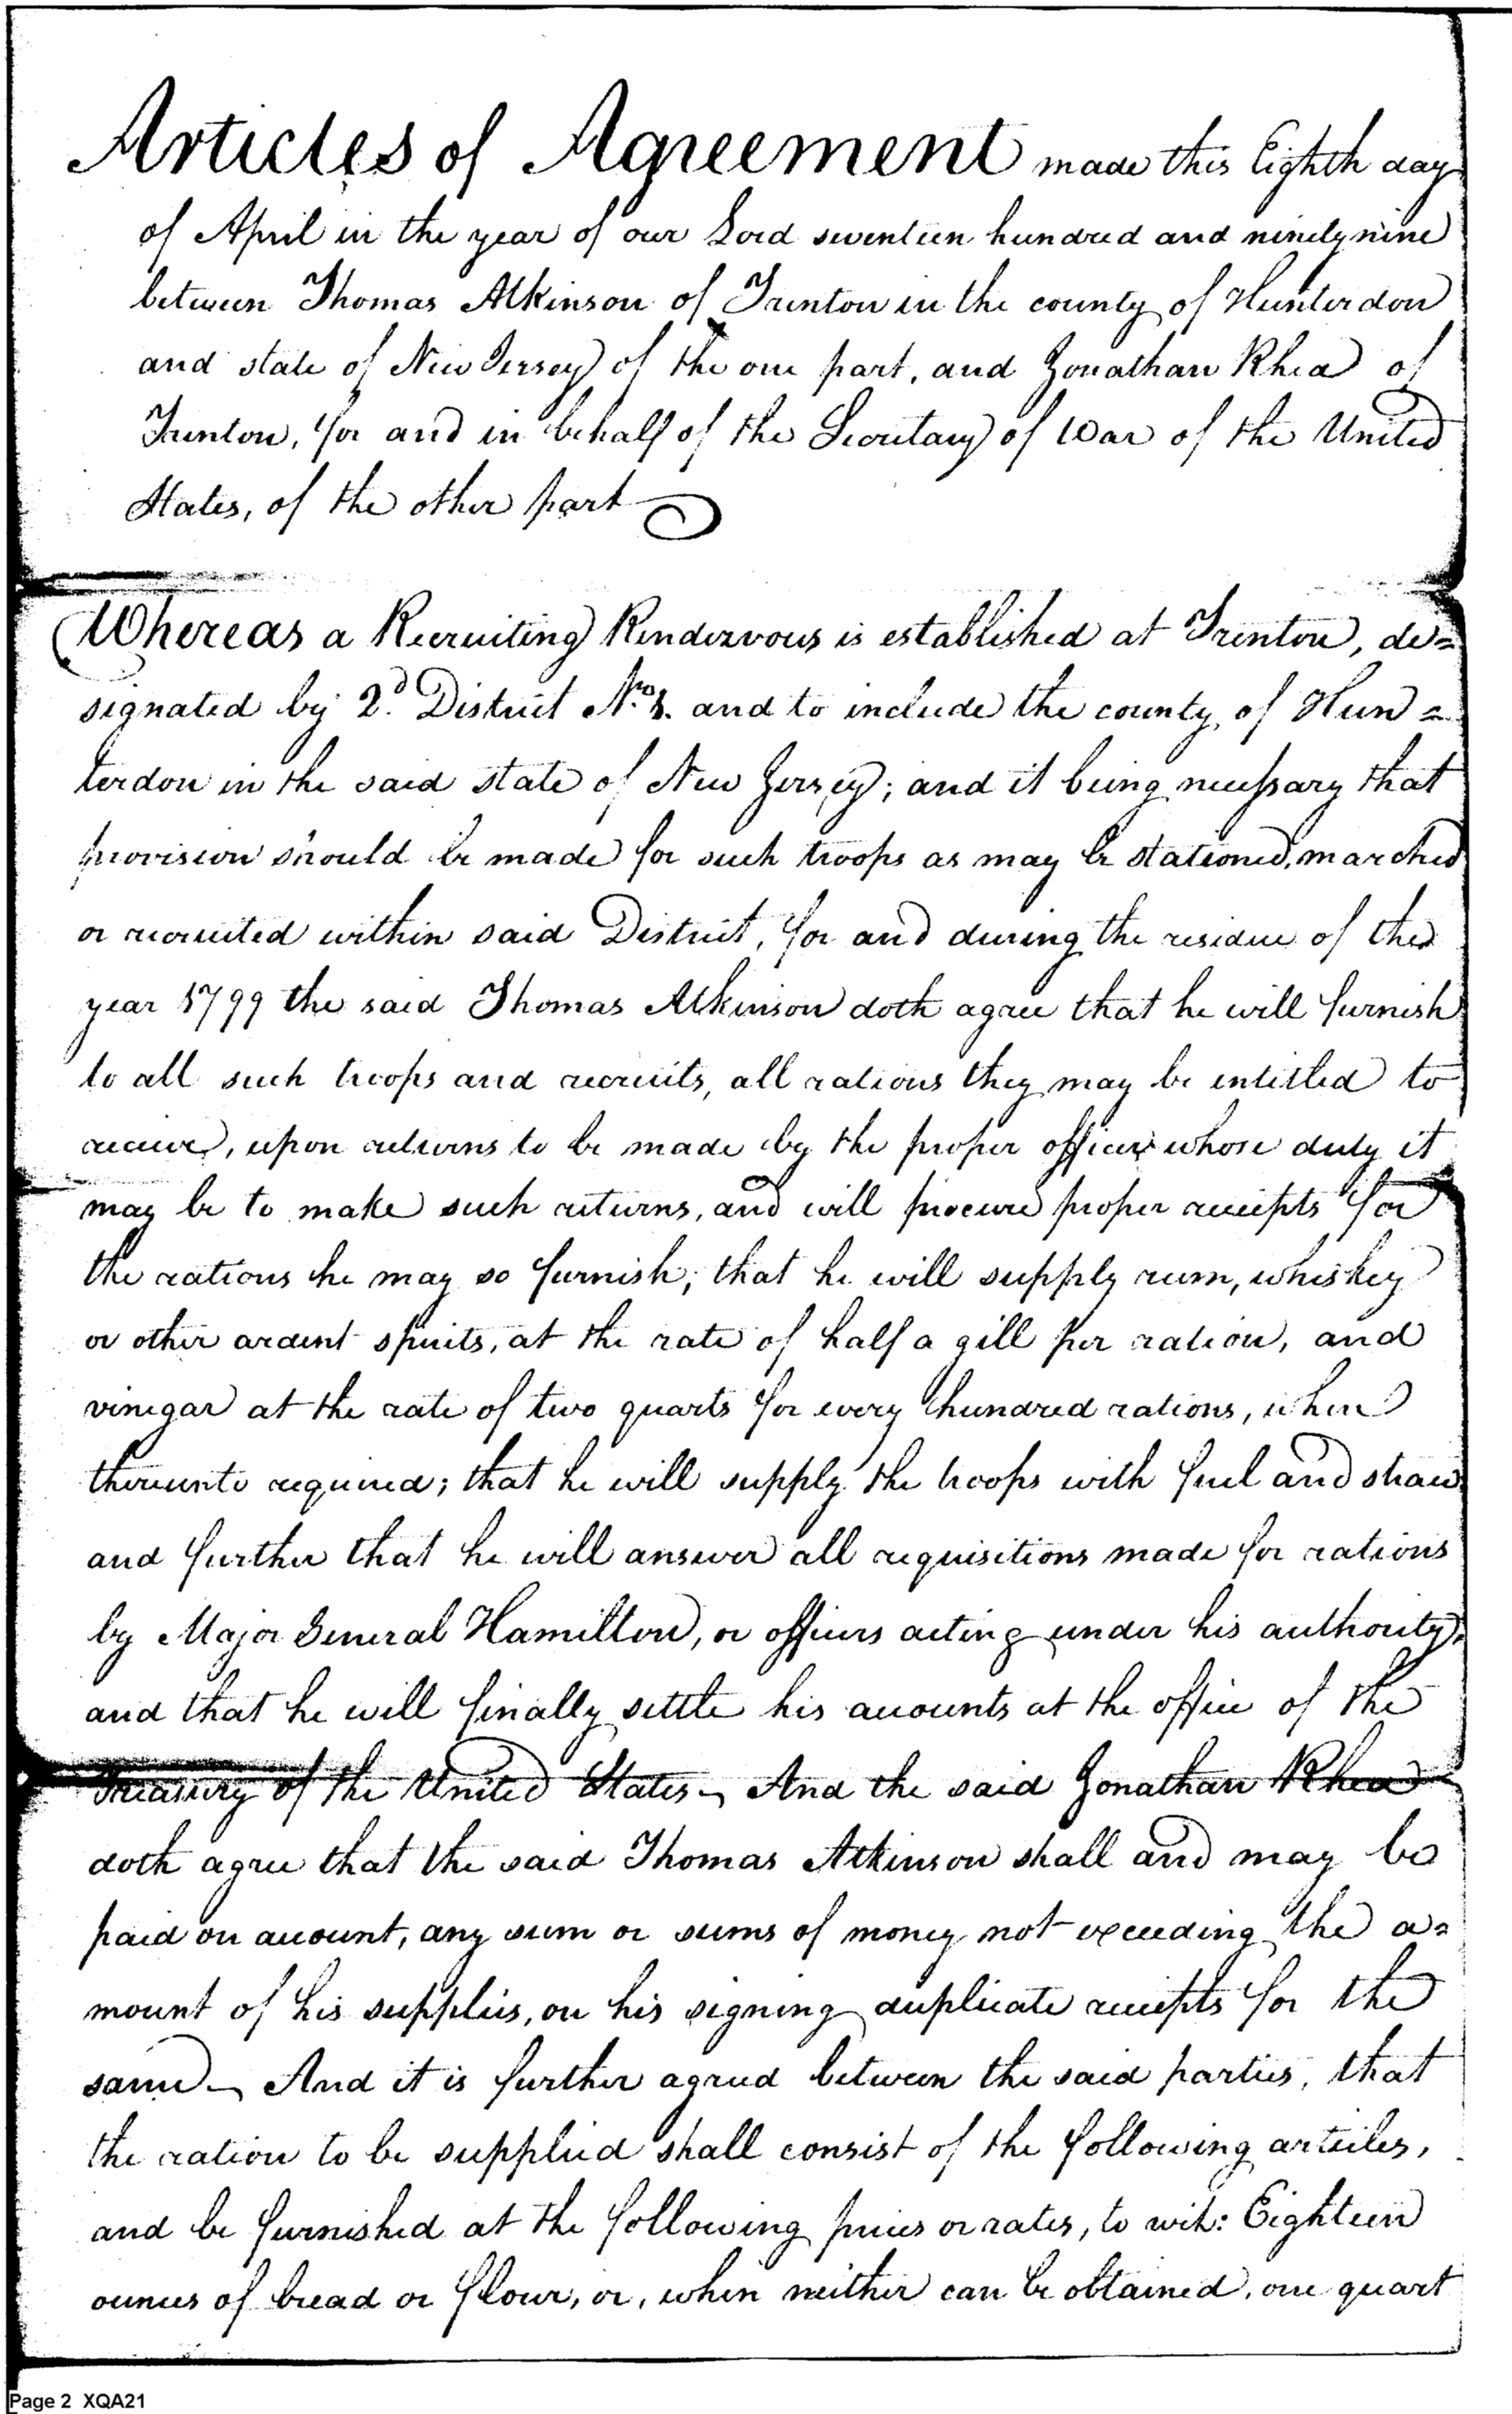 Articles of Agreement made this Eighth day
of April in the year of our Lord seventeen hundred and ninety nine
between Thomas Atkinson of Trenton in the county of Hunterdon
and state of New Jersey of the one part, and Jonathan Rhea of
Trenton, for and in behalf of the Secretary of War of the United
States, of the other part
Whereas a Recruiting Rendezvous is established at Trenton, de=
signated by 2d. District No. 1. and to include the county of Hun=
terdon in the said state of New Jersey; and it being necessary that
provision should be made for such troops as may be stationed, marched
or recruited within said District, for and during the residue of the
year 1799 the said Thomas Atkinson doth agree that he will furnish
to all such troops and recruits, all rations they may be entitled to
receive, upon returns to be made by the proper officer whose duty it
may be to make such returns, and will procure proper receipts for
the rations he may so furnish; that he will supply rum, whiskey
or other ardent spirits, at the rate of half a gill per ration, and
vinegar at the rate of two quarts for every hundred rations, when
thereunto required; that he will supply the troops with fuel and straw
and further that he will answer all requisitions made for rations
by Major General Hamilton, or officers acting under his authority,
and that he will finally settle his accounts at the office of the
Treasury of the United States – And the said Jonathan Rhea
doth agree that the said Thomas Atkinson shall and may be
paid on account, any sum or sums of money not exceeding the a=
mount of his supplies, on his signing duplicate receipts for the
same – And it is further agreed between the said parties, that
the ration to be supplied shall consist of the following articles,
and be furnished at the following prices or rates, to wit: Eighteen
ounces of bread or flour, or, when neither can be obtained, one quart
Page 2 XQA21